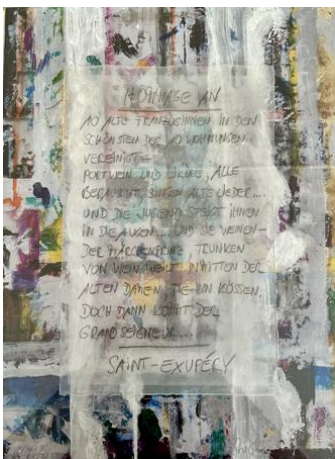 HOMMAGE AN
10 ALTE FRANZÖSINNEN IN DEN
SCHÖNSTEN DER 10 WOHNUNGEN
VEREINIGT -
PORTWEIN UND LIKÖRE, ALLE
BERAUSCHT, SINGEN ALTE LIEDER....
UND DIE JUGEND STEIGT IHNEN
IN DIE AUGEN... UND SIE WEINEN-
DER MÄRCHENPRINZ, TRUNKEN
VON WEIN INMITTEN DER
ALTEN DAMEN, DIE IHN KÜSSEN.
DOCH DANN KOMMT DER
GRAND SEIGNEUR....
SAINT-EXUPÉRY